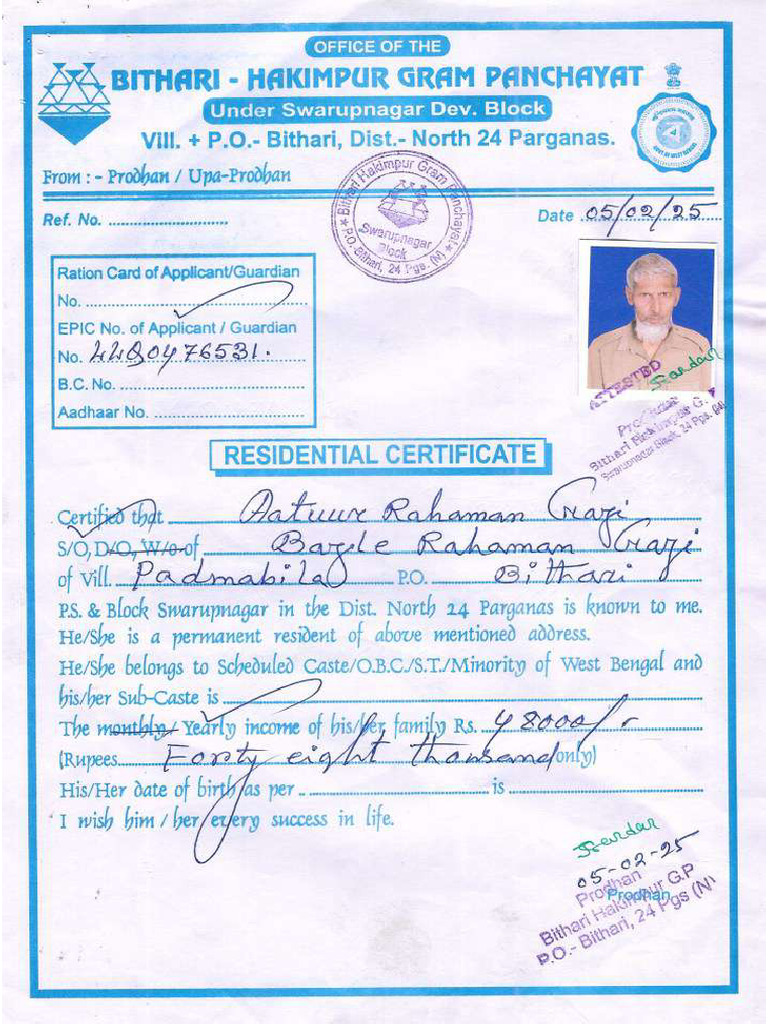 OFFICE OF THE
BITHARI - HAKIMPUR GRAM PANCHAYAT
Under Swarupnagar Dev. Block
Vill. + P.O.- Bithari, Dist.- North 24 Parganas.
From : - Prodhan / Upa-Prodhan
Ref. No. ..............................
Date 05/02/25
Bithari Hakimpur Gram Panchayat
Swarupnagar
Block
P.O.-Bithari, 24 Pgs. (N)
Ration Card of Applicant/Guardian
No. ..............................
EPIC No. of Applicant / Guardian
No. LLQ0476531.
B.C. No. ..............................
Aadhaar No. ..............................
ATTESTED
Sardar
Prodhan
Bithari Hakimpur G.P
Swarupnagar Block, 24 Pgs. (N)
RESIDENTIAL CERTIFICATE
Certified that Aatuur Rahaman Gazi
S/O, D/O, W/o of Bazle Rahaman Gazi
of Vill. Padmabila P.O. Bithari
P.S. & Block Swarupnagar in the Dist. North 24 Parganas is known to me.
He/She is a permanent resident of above mentioned address.
He/She belongs to Scheduled Caste/O.B.C./S.T./Minority of West Bengal and
his/her Sub-Caste is ..............................
The monthly/ Yearly income of his/her family Rs. 48000/-
(Rupees Forty eight thousand only)
His/Her date of birth as per .............................. is ..............................
I wish him / her every success in life.
Sardar
05-02-25
Prodhan
Prodhan
Bithari Hakimpur G.P
P.O.- Bithari, 24 Pgs (N)